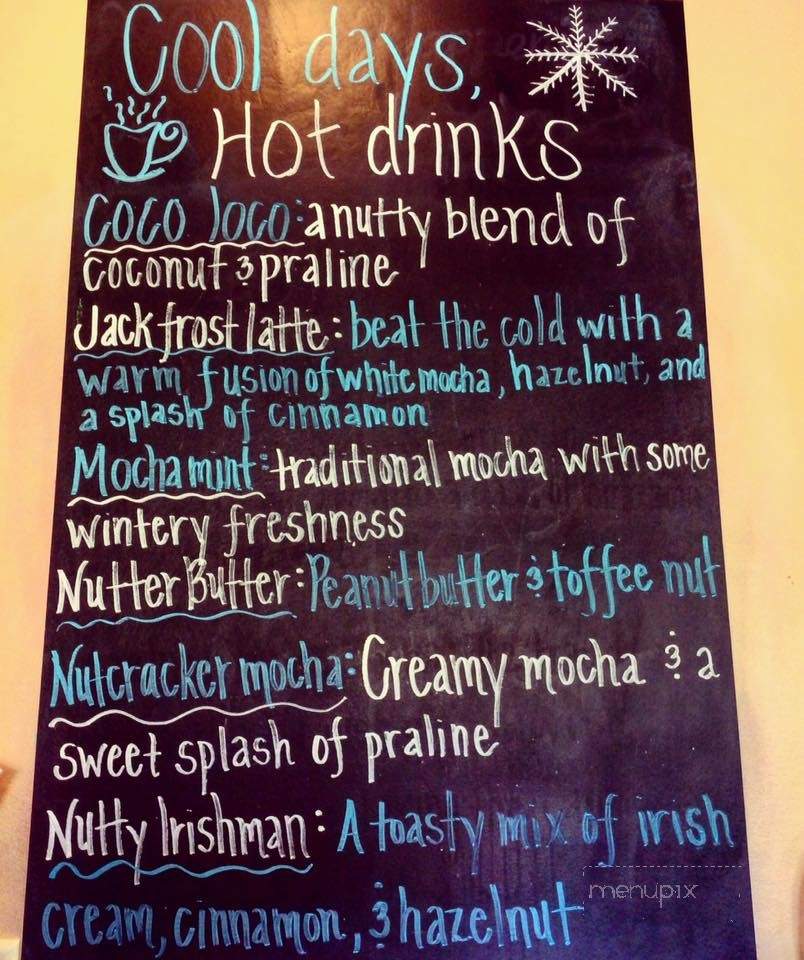 Cool days,
Hot drinks
Coco loco: a nutty blend of
coconut & praline
Jack frost latte: beat the cold with a
warm fusion of white mocha, hazelnut, and
a splash of cinnamon
Mocha mint: traditional mocha with some
wintery freshness
Nutter Butter: Peanut butter & toffee nut
Nutcracker mocha: Creamy mocha & a
sweet splash of praline
Nutty Irishman: A toasty mix of irish
cream, cinnamon, & hazelnut
menupix